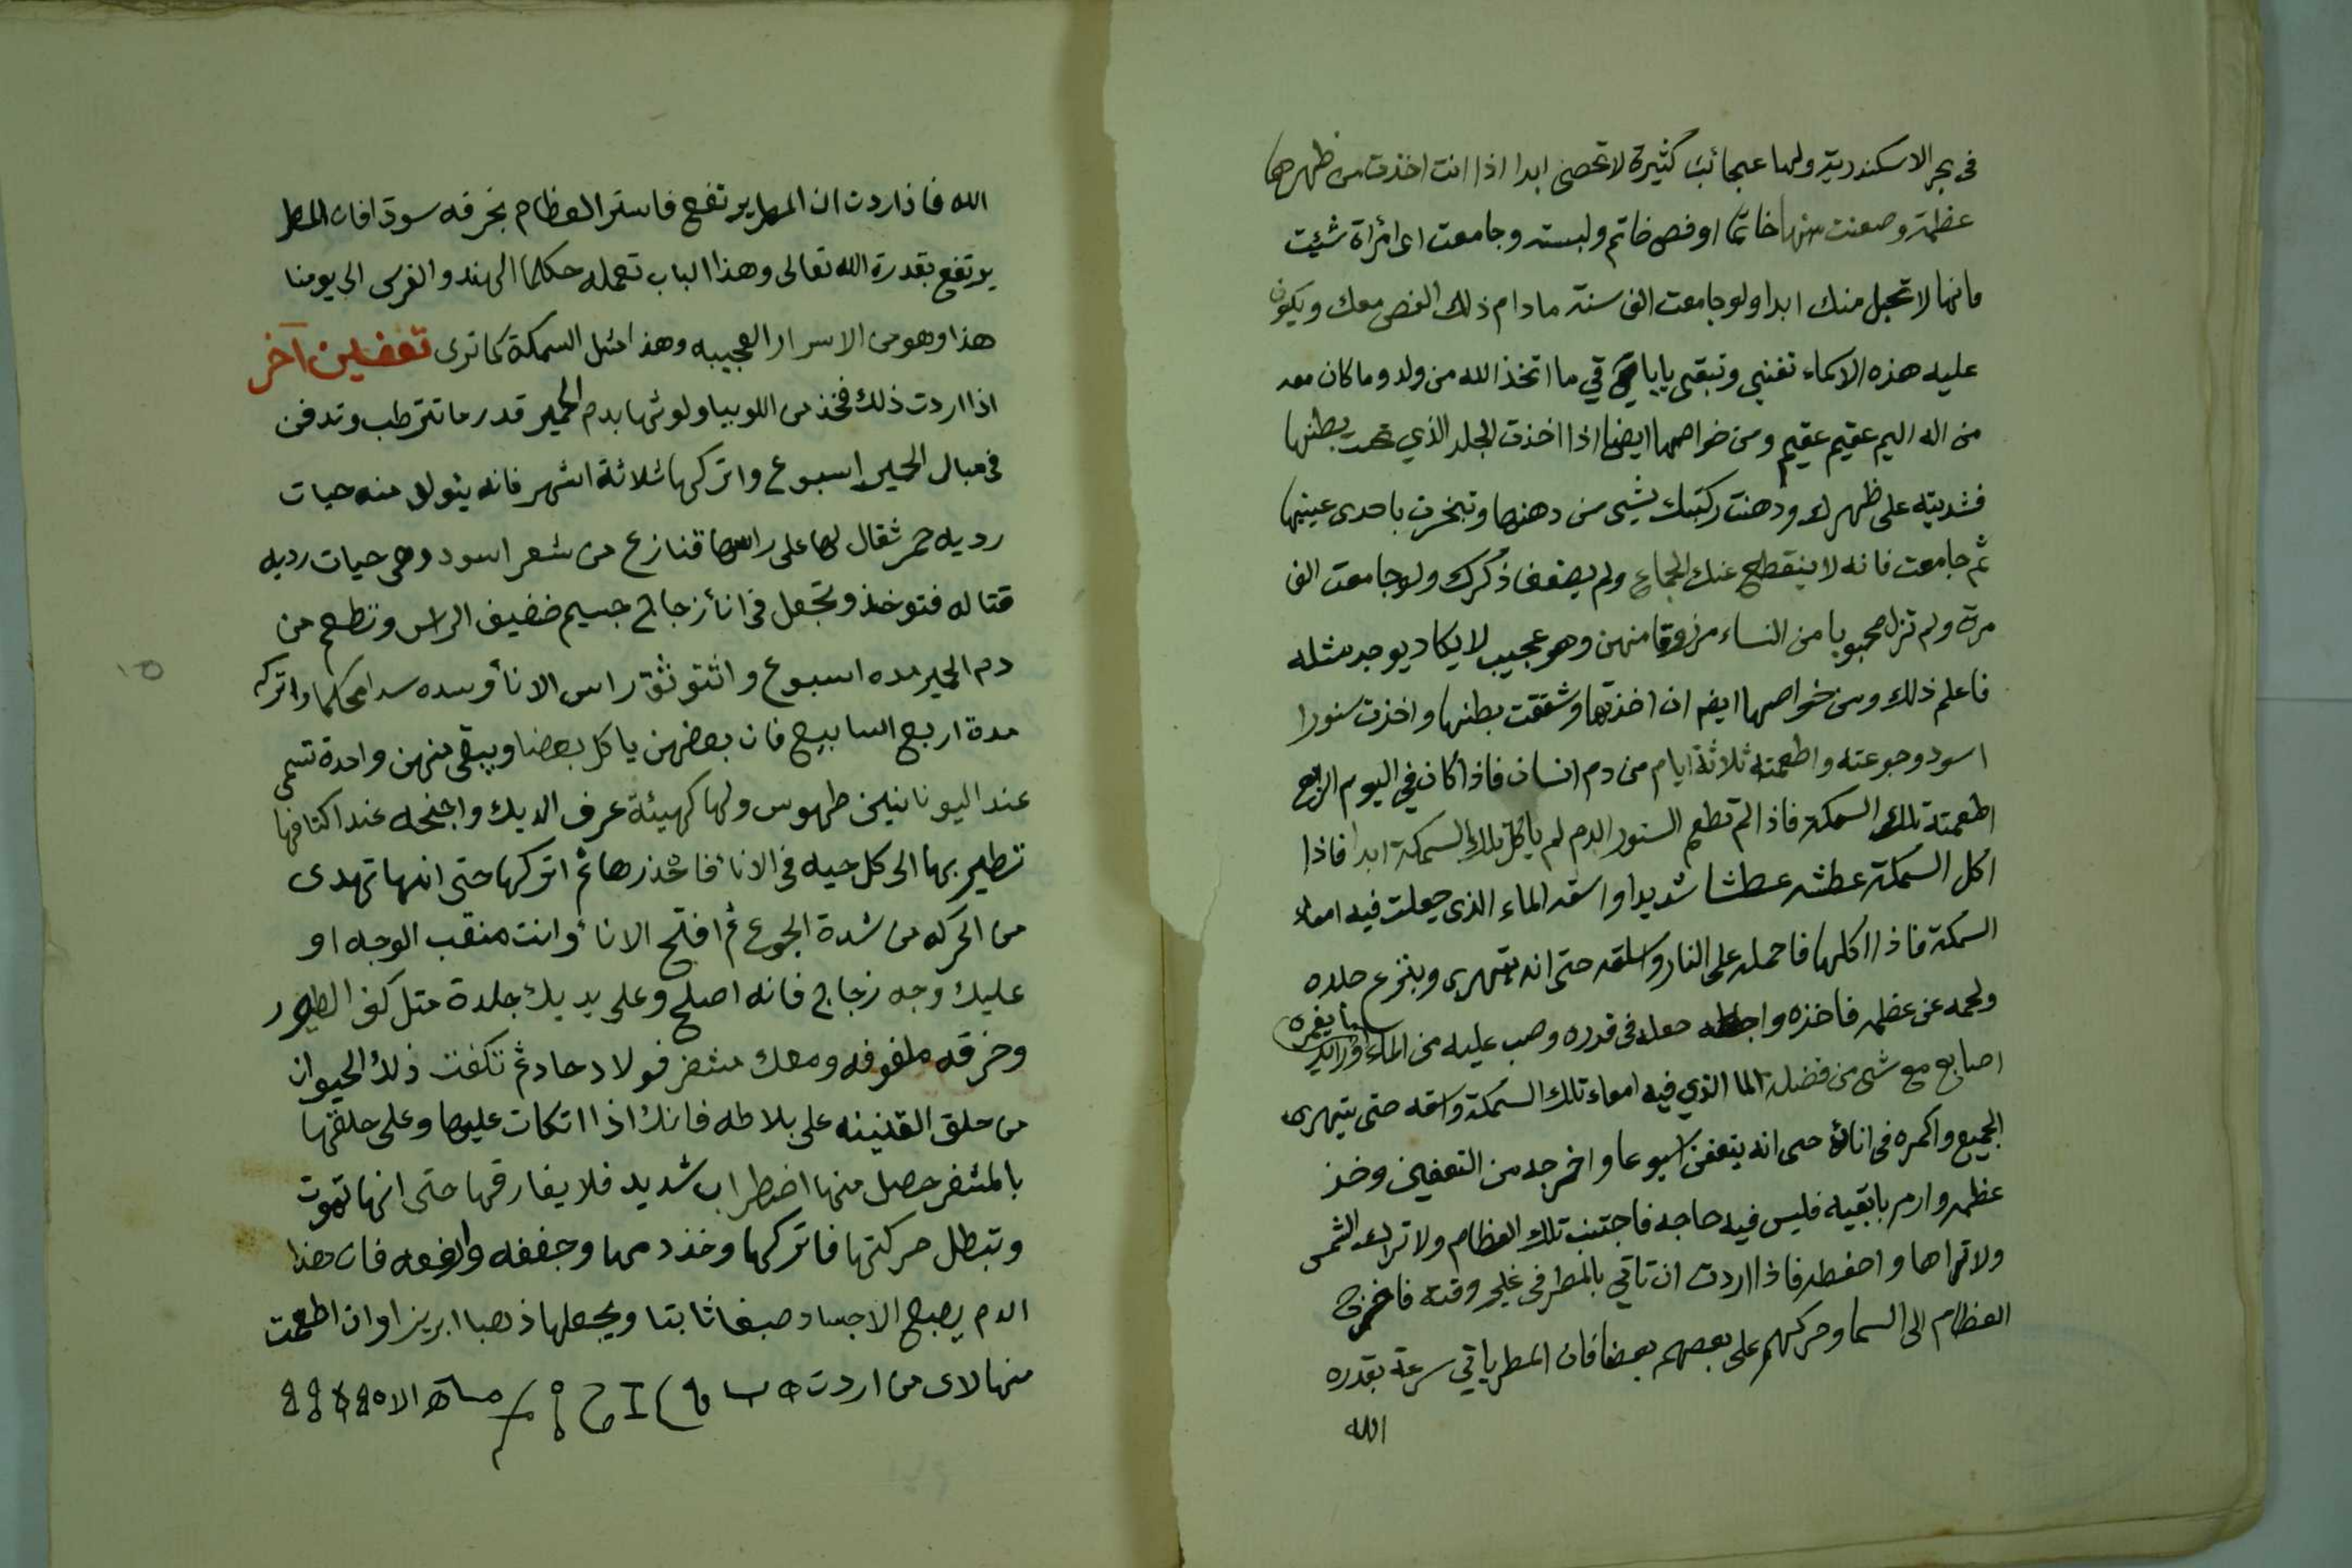 فى بحر الاسكندرية ولها عجائب كثيرة لا تحصى ابدا اذا انت اخذت من ظهرها
عظمة وصنعت منها خاتما او فص خاتم ولبسته وجامعت اى امرأة شئت
فانها لا تحبل منك ابدا ولو جامعت الف سنة ما دام ذلك الفص معك ويكون
عليه هذه الاسماء تفنى وتبقى يا باقي ما اتخذ الله من ولد وما كان معه
من اله اليم عقيم عقيم ومن خواصها ايضا اذا اخذت الجلد الذي تحت بطنها
فشديته على ظهرك ودهنت ركبتك بشىء من دهنها وتبخرت باحدى عينيها
ثم جامعت فانه لا ينقطع عنك الجماع ولم يضعف ذكرك ولو جامعت الف
مرة ولم تزل محبوبا من النساء مرزوقا منهن وهو عجيب لا يكاد يوجد مثله
فاعلم ذلك ومن خواصها ايضا ان اخذتها وشققت بطنها واخذت سنورا
اسود وجوعته واطعمته ثلاثة ايام من دم انسان فاذا كان في اليوم الرابع
اطعمته تلك السمكة فاذا لم تطعم السنور الدم لم ياكل تلك السمكة ابدا فاذا
اكل السمكة عطشه عطشا شديدا واسقه الماء الذى جعلت فيه امعاء
السمكة فاذا اكلها فاحمله على النار واسلقه حتى انه يتهرى وينزع جلده
ولحمه عن عظمه فاخذه واجعله فى قدره وصب عليه من الماء ما يغمره
اصابع مع شى من فضلة الما الذي فيه امعاء تلك السمكة واسقه حتى يتهرى
الجميع واكمره فى اناء حتى انه يتعفن اسبوعا واخرجه من التعفين وخذ
عظمه وارم بابقيه فليس فيه حاجه فاجتنب تلك العظام ولا تراك الشمس
ولا تراها واحفظه فاذا اردت ان تاتي بالمطر فى غير وقته فاخرج
العظام الى السما وحركهم على بعضهم بعضا فان المطر ياتي سرعة بقدره
الله
الله فاذا اردت ان المطر يرتفع فاستر العظام بخرقه سودا فان المطر
يرتفع بقدرة الله تعالى وهذا الباب تعمله حكما الهند والفرس الى يومنا
هذا وهو من الاسرار العجيبه وهذا مثل السمكة كما ترى تعفين آخر
اذا اردت ذلك فخذ من اللوبيا ولوثها بدم الحمير قدر ما تترطب وتدفن
فى مبال الحمير اسبوع واتركها ثلاثة اشهر فانه يتولد منه حيات
رديه حمر ثقال لها على راسها قنازع من شعر اسود وهى حيات رديه
قتاله فتوخذ وتجعل فى انأ زجاج جسيم ضفيف الراس وتطعم من
دم الحمير مده اسبوع واتثوثق راس الانأ وسده سدا محكما واتركه
مدة اربع اسابيع فان بعضهن ياكل بعضا ويبقى منهن واحدة تسمى
عند اليونانيين طهوس ولها كهيئة عرف الديك واجنحه عند اكتافها
تطير بها الى كل حيه فى الانأ فاحذرها ثم اتركها حتى انها تهدى
من الحركه من شدة الجوع ثم افتح الانأ وانت منقب الوجه او
عليك وجه زجاج فانه اصلح وعلى يديك جلدة مثل كف الطيور
وخرقه ملفوفه ومعك مشفر فولاد حاد ثم تكفت ذلك الحيوان
من حلق القنينه على بلاطه فانك اذا اتكات عليها وعلى حلقها
بالمشفر حصل منها اضطراب شديد فلا يفارقها حتى انها تموت
وتبطل حركتها فاتركها وخذ دمها وجففه وارفعه فان هذا
الدم يصبح الاجساد صبغا ثابتا ويجعلها ذهبا ابريزا وان اطعمت
منها لاى من اردت